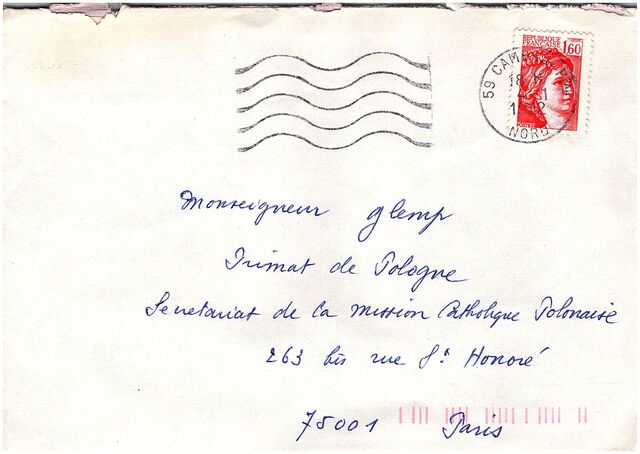 REPUBLIQUE
FRANÇAISE
1,60
59 CAMBRAI
18 H
1 12
NORD
Monseigneur Glemp
Primat de Pologne
Secretariat de la mission Catholique Polonaise
263 bis rue St Honoré
75001 Paris